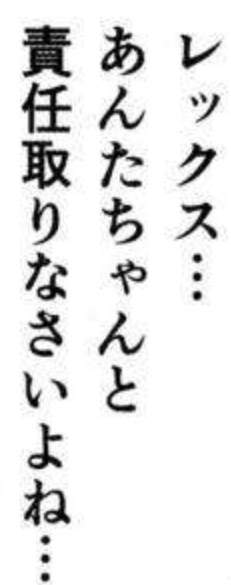 レックス…
あんたちゃんと
責任取りなさいよね…